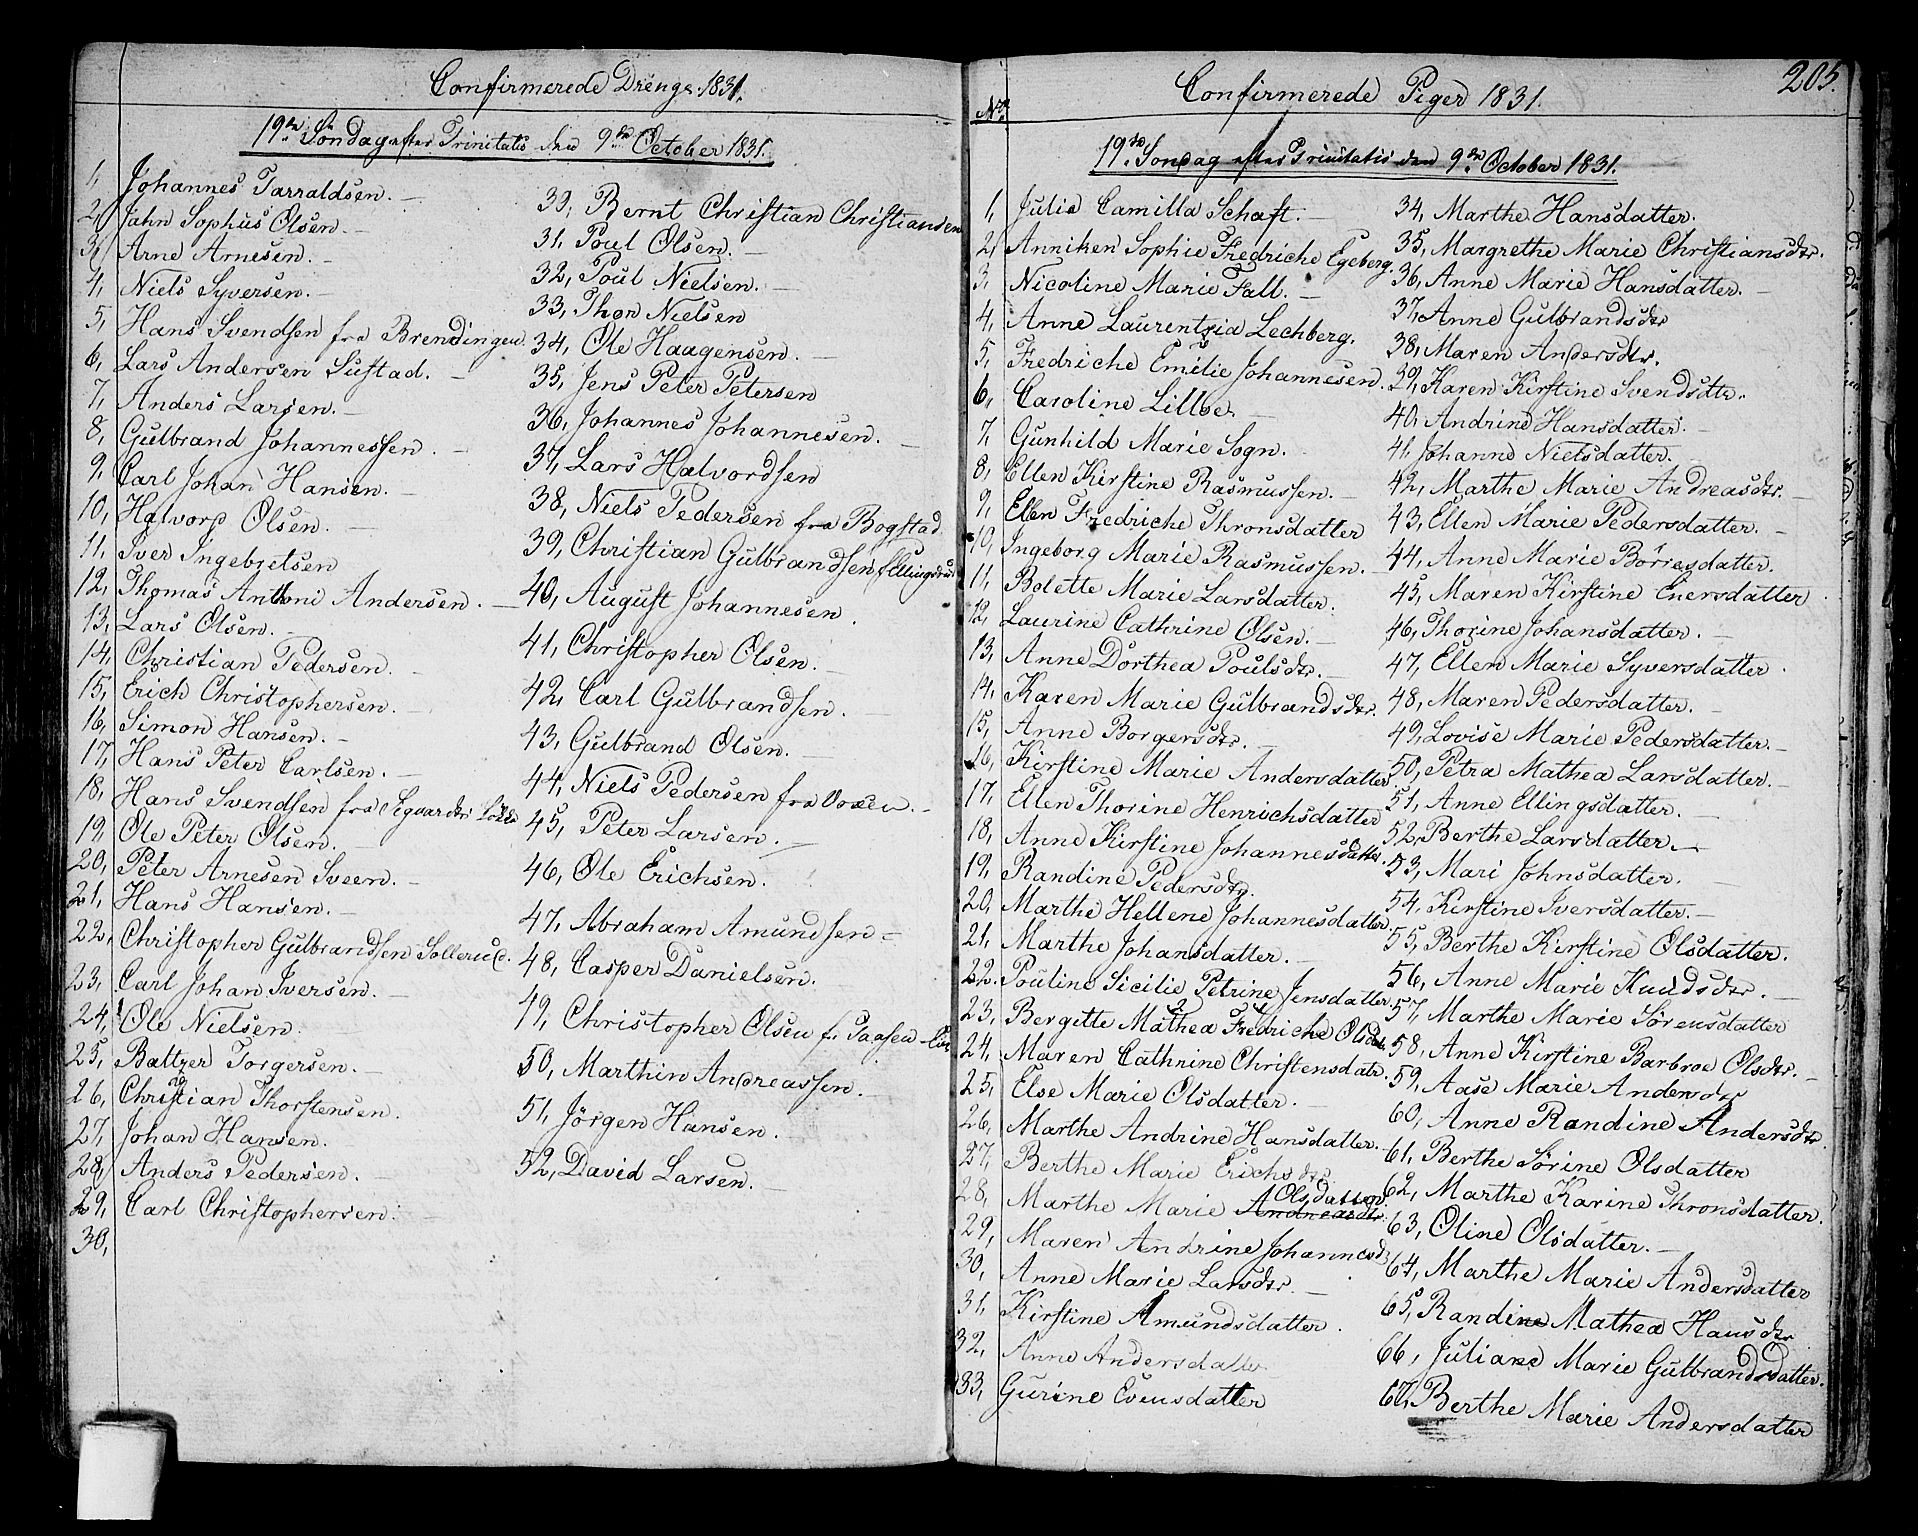 Confirmerede Drenge 1831.
19de Söndag efter Trinitatis den 9de October 1831.
1, Johannes Tarraldsen.
2, Jahn Sophus Olsen.
3, Arne Arnesen.
4, Niels Syversen.
5, Hans Svendsen fra Brendingen
6, Lars Andersen Sustad.
7, Anders Larsen.
8, Gulbrand Johannessen.
9, Carl Johan Hansen.
10, Halvord Olsen.
11, Iver Ingebretsen
12, Thomas Anthoni Andersen.
13, Lars Olsen.
14, Christian Pedersen.
15, Erich Christophersen.
16, Simon Hansen.
17, Hans Peter Carlsen.
18, Hans Svendsen fra
19, Ole Peter Olsen.
20, Peter Arnesen Sveen.
21, Hans Hansen.
22, Christopher Gulbrandsen Sollerud.
23, Carl Johan Iversen.
24, Ole Nielsen.
25, Baltzer Torgersen.
26, Christian Thorstensen.
27, Johan Hansen.
28, Anders Pedersen.
29, Carl Christophersen.
30,
30, Bernt Christian Christiansen
31, Poul Olsen.
32, Poul Nielsen.
33, Thor Nielsen
34, Ole Haagensen.
35, Jens Peter Petersen
36, Johannes Johannesen.
37, Lars Halvordsen
38, Niels Pedersen fra Bogstad
39, Christian Gulbrandsen,
40, August Johannesen.
41, Christopher Olsen.
42, Carl Gulbrandsen.
43, Gulbrand Olsen.
44, Niels Pedersen fra Voxen.
45, Peter Larsen.
46, Ole Erichsen.
47, Abraham Amundsen
48, Casper Danielsen.
49, Christopher Olsen f.
50, Marthin Andreassen.
51, Jörgen Hansen.
52, David Larsen.
205.
Confirmerede Piger 1831.
No
19de Söndag efter Trinitatis den 9de October 1831.
1, Julie Camilla Schaft.
2, Anniken Sophie Fredriche Egeberg.
3, Nicoline Marie Fall.
4, Anne Laurentzia Lechberg.
5, Fredriche Emilie Johannesen.
6, Caroline Lilloe
7, Gunhild Marie Sogn.
8, Ellen Kirstine Rasmussen.
9, Ellen Fredriche Thronsdatter
10, Ingeborg Marie Rasmussen.
11, Bolette Marie Larsdatter.
12, Laurine Cathrine Olsen.
13, Anne Dorthea Poulsdtr.
14, Karen Marie Gulbrandsdtr.
15, Anne Borgersdtr.
16, Kirstine Marie Andersdatter
17, Ellen Thorine Henrichsdatter
18, Anne Kirstine Johannesdatter.
19, Randine Pedersdtr.
20, Marthe Hellene Johannesdatter.
21, Marthe Johansdatter.
22, Pouline Sicilie Petrine Jensdatter.
23, Bergitte Mathea Fredriche Olsdatr.
24, Maren Cathrine Christensdatr.
25, Else Marie Olsdatter.
26, Marthe Andrine Hansdatter.
27, Berthe Marie Erichsdtr.
28, Marthe Marie Andreasdtr. Olsdatter
29, Maren Andrine Johannesd
30, Anne Marie Larsdtr.
31, Kirstine Amundsdatter.
32, Anne Andersdatter
33, Gurine Evensdatter
34, Marthe Hansdatter.
35, Margrethe Marie Christiansdtr.
36, Anne Marie Hansdatter.
37, Anne Gulbrandsdtr
38, Maren Andersdtr.
39, Karen Kirstine Svendsdtr.
40, Andrine Hansdatter.
41, Johanne Nielsdatter.
42, Marthe Marie Andreasdtr.
43, Ellen Marie Pedersdatter.
44, Anne Marie Börresdatter.
45, Maren Kirstine Enersdatter.
46, Thorine Johansdatter.
47, Ellen Marie Syversdatter.
48, Maren Pedersdatter.
49, Lovise Marie Pedersdatter.
50, Petra Mathea Larsdatter.
51, Anne Ellingsdatter.
52, Berthe Larsdatter.
53, Mari Johnsdatter.
54, Kirstine Iversdatter.
55, Berthe Kirstine Olsdatter.
56, Anne Marie Knudsdtr.
57, Marthe Marie Sörensdatter
58, Anne Kirstine Barbroe Olsdtr.
59, Aase Marie Andersdtr
60, Anne Randine Andersdtr
61, Berthe Sörine Olsdatter
62, Marthe Karine Thronsdatter.
63, Oline Olsdatter.
64, Marthe Marie Andersdatter
65, Randine Mathea Hansdtr
66, Juliane Marie Gulbrandsdatter.
67, Berthe Marie Andersdatter